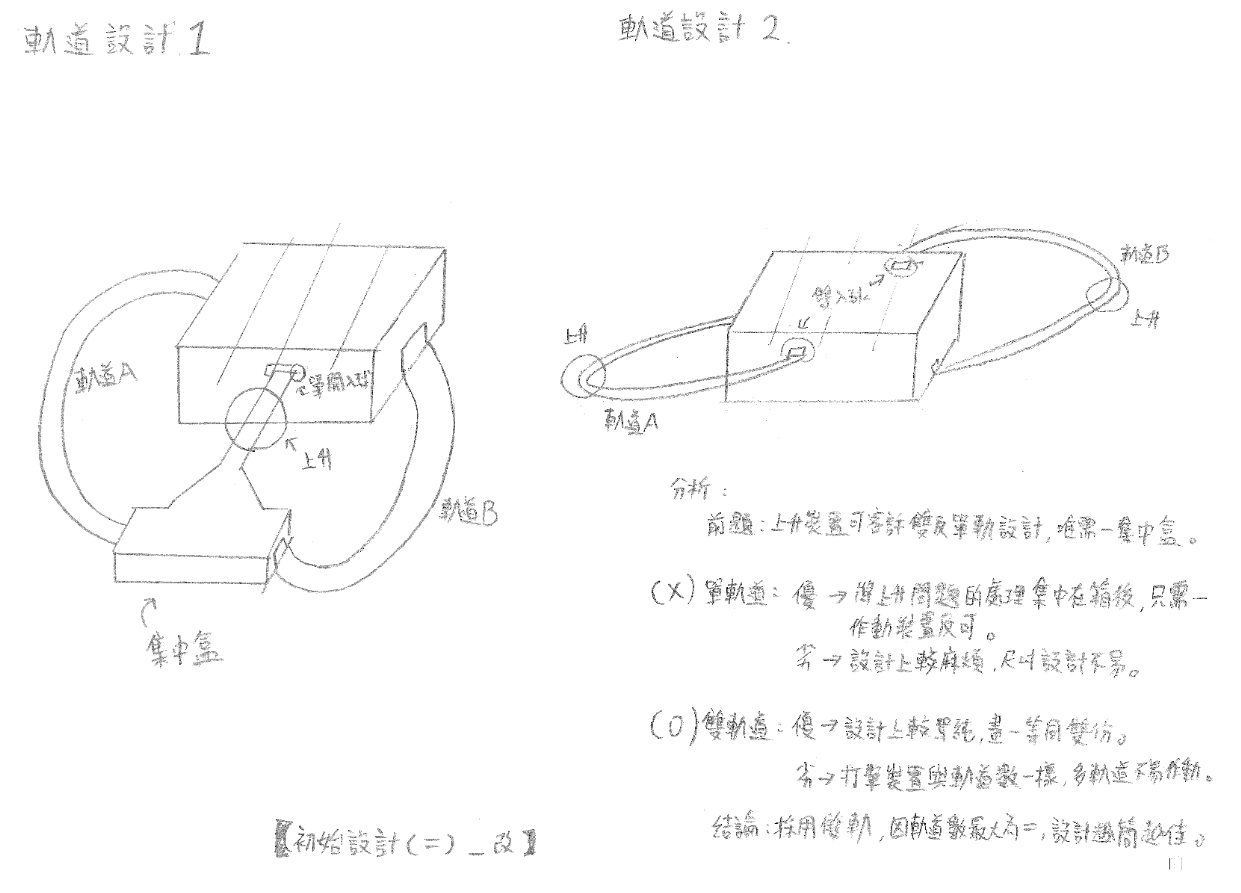 軌道設計 1
軌道設計 2.
軌道A
單開入球
上升
軌道B
集中盒
軌道B
雙入球
上升
上升
軌道A
分析：
前題：上升裝置可容許雙及單軌設計，唯需一集中盒。
(X) 單軌道：優 → 將上升問題的處理集中在箱後，只需一
作動裝置反可。
劣 → 設計上較麻煩，尺寸設計不易。
(O) 雙軌道：優 → 設計上較單純，畫一等同雙份。
劣 → 打擊裝置與軌道數一樣，多軌道不易作動。
結論：採用雙軌，因軌道數最大為二，設計越簡越佳。
【初始設計(二)_改】